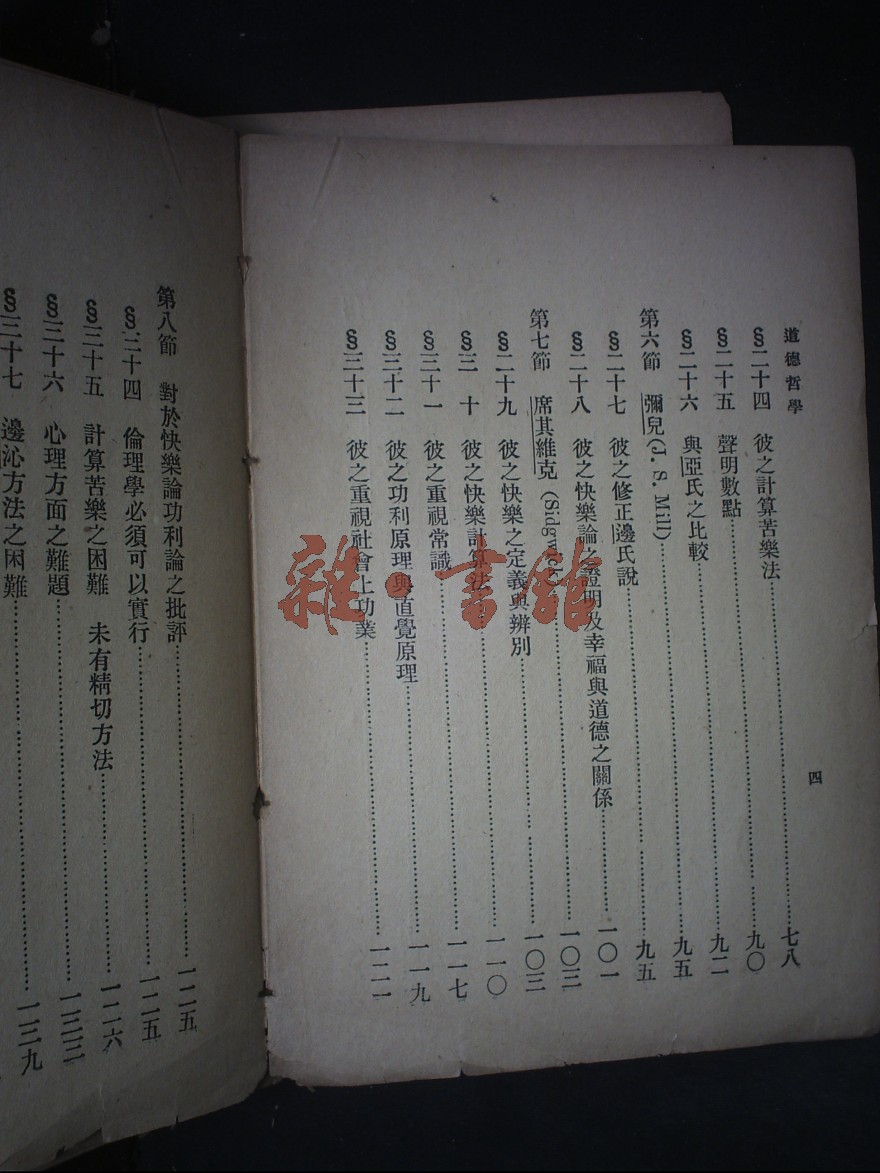 道德哲學
四
§二十四 彼之計算苦樂法……七八
§二十五 聲明數點……九〇
§二十六 與亞氏之比較……九二
第六節 彌兒(J. S. Mill)……九五
§二十七 彼之修正邊氏說……九五
§二十八 彼之快樂論之證明及幸福與道德之關係……一〇一
第七節 席其維克 (Sidgwick)……一〇三
§二十九 彼之快樂之定義與辨別……一〇三
§三十 彼之快樂計算法……一一〇
§三十一 彼之重視常識……一一七
§三十二 彼之功利原理與直覺原理……一一九
§三十三 彼之重視社會上功業……一二一
第八節 對於快樂論功利論之批評……一二五
§三十四 倫理學必須可以實行……一二五
§三十五 計算苦樂之困難 未有精切方法……一二六
§三十六 心理方面之難題……一三三
§三十七 邊沁方法之困難……一三九
雜·書館